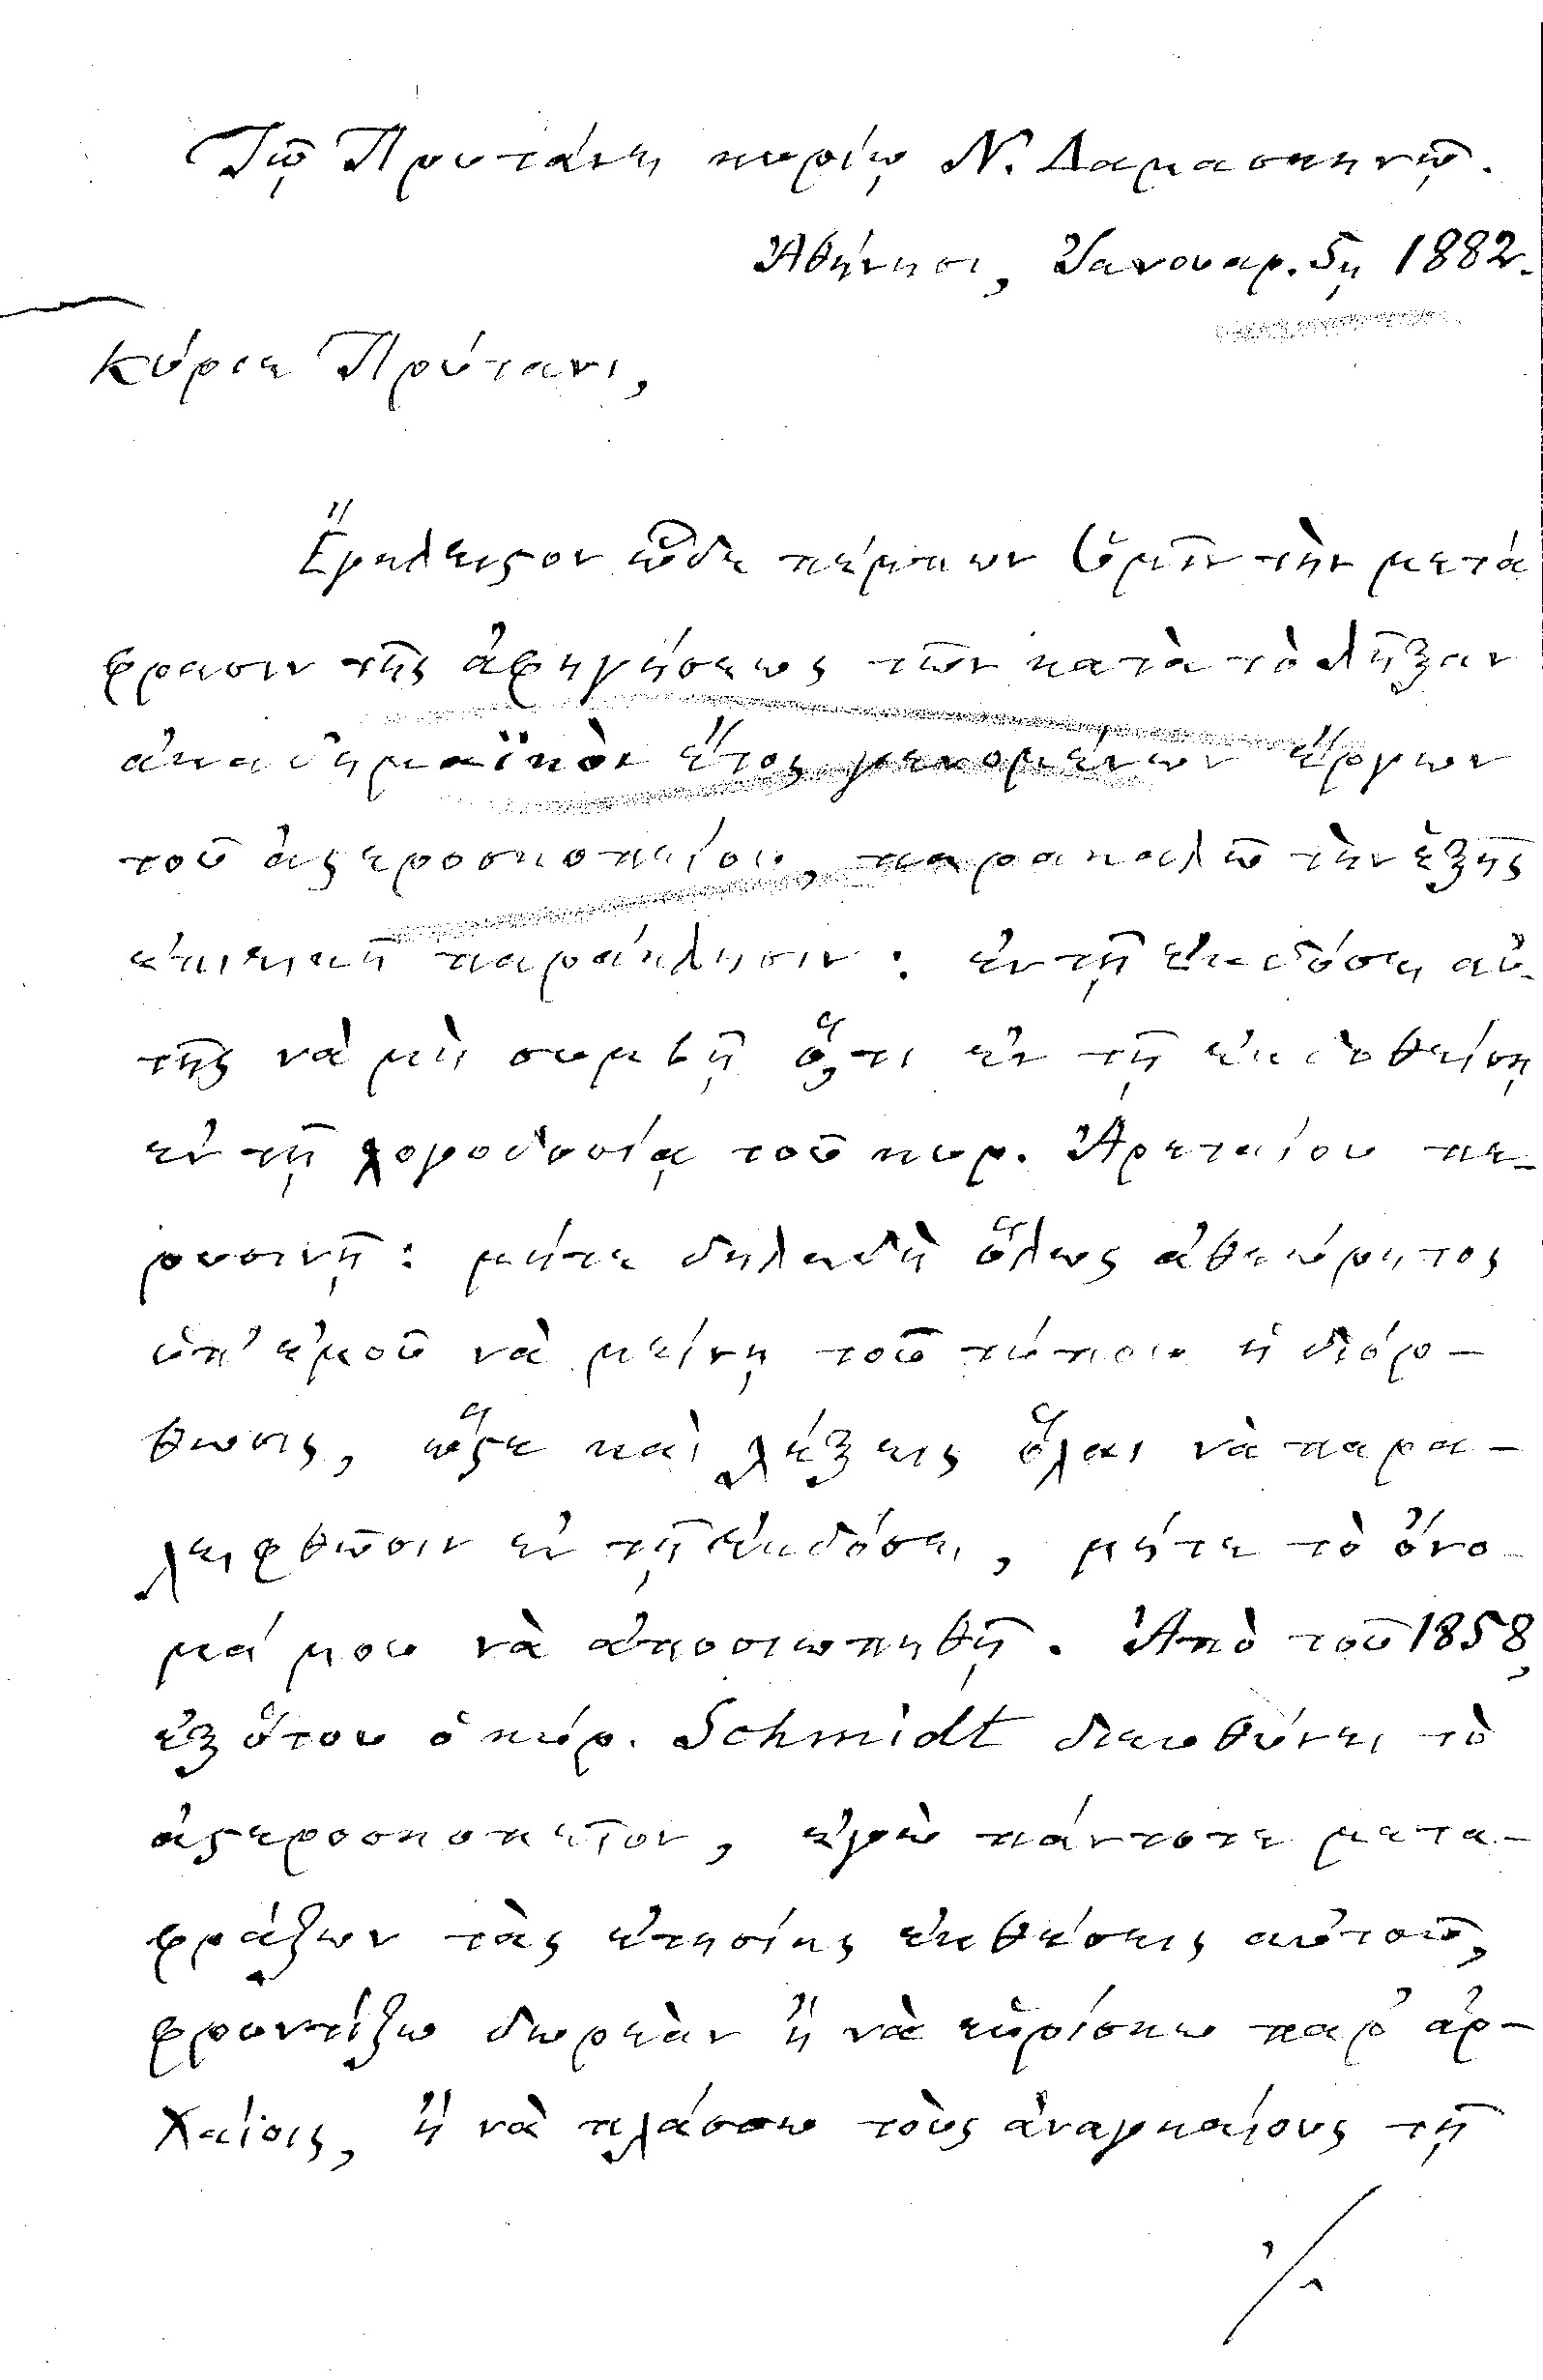 Τῷ Πρυτάνει κυρίῳ Ν. Δαμασκηνῷ.
Ἀθήνησι, Ἰανουαρ. 5ῃ 1882.
Κύριε Πρύτανι,
Ἔγκλειστον ὧδε πέμπων ὑμῖν τὴν μετά
φρασιν τῆς ἀφηγήσεως τῶν κατὰ τὸ λῆξαν
ἀκαδημαϊκὸν ἔτος γενομένων ἔργων
τοῦ ἀστεροσκοπείου, παρακαλῶ τὴν ἑξῆς
ἐπιεικῆ παράκλησιν: ἐν τῇ ἐκδόσει αὐ-
τῆς νὰ μὴ συμβῇ ὅ,τι ἐν τῇ ἐκδοθείσῃ
ἐν τῇ λογοδοσίᾳ τοῦ κυρ. Ἀρεταίου πε-
ρυσινῇ: μήτε δηλαδὴ ὅλως ἀθεώρητος
ὑπ' ἐμοῦ νὰ μείνῃ τοῦ τύπου ἡ διόρ-
θωσις, ὥστε καὶ λέξεις ὅλαι νὰ παρα-
λειφθῶσιν ἐν τῇ ἐκδόσει, μήτε τὸ ὄνο-
μά μου νὰ ἀποσιωπηθῇ. Ἀπὸ τοῦ 1858,
ἐξ ὅτου ὁ κύρ. Schmidt διευθύνει τὸ
ἀστεροσκοπεῖον, ἐγὼ πάντοτε μετα-
φράζων τὰς ἐτησίας ἐκθέσεις αὐτοῦ,
φροντίζω δωρεὰν ἢ νὰ εὑρίσκω παρ' ἀρ-
χαίοις, ἢ νὰ πλάσσω τοὺς ἀναγκαίους τῇ